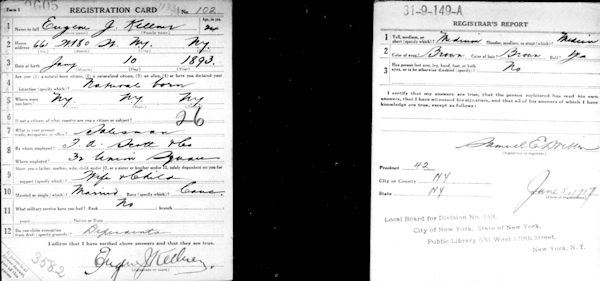 Form 1
REGISTRATION CARD No. 102
1 Name in full Eugene J. Kellner
Age, in yrs.
2 Home address 66 W 180 St. NY. NY
3 Date of birth Jany 10 1893
4 Are you (1) a natural-born citizen, (2) a naturalized citizen, (3) an alien, (4) or have you declared your
intention (specify which)? Natural born
5 Where were you born? NY NY NY
6 If not a citizen, of what country are you a citizen or subject?
26
7 What is your present trade, occupation, or office? Salesman
8 By whom employed? T. A. Scott & Co
Where employed? 32 Union Square
9 Have you a father, mother, wife, child under 12, or a sister or brother under 12, solely dependent on you for
support (specify which)? Wife & Child
10 Married or single (which)? Married Race (specify which)? Cauc.
11 What military service have you had? Rank No branch
years Nation or State
12 Do you claim exemption from draft (specify grounds)? Dependents
I affirm that I have verified above answers and that they are true.
Eugene J. Kellner
3582
31-9-149-A
REGISTRAR'S REPORT
1 Tall, medium, or short (specify which)? Medium Slender, medium, or stout (which)? Medium
2 Color of eyes? Brown Color of hair? Brown Bald? No
3 Has person lost arm, leg, hand, foot, or both eyes, or is he otherwise disabled (specify)? No
I certify that my answers are true, that the person registered has read his own
answers, that I have witnessed his signature, and that all of his answers of which I have
knowledge are true, except as follows:
Samuel E.
(Signature of registrar)
Precinct 42
City or County NY
State NY
June 5, 1917
(Date of registration)
Local Board for Division No. 149,
City of New York, State of New York,
Public Library 535 West 179th Street,
New York, N.Y.